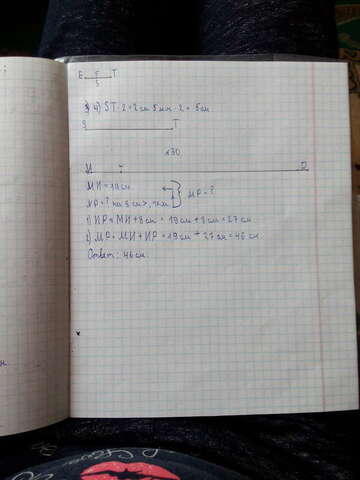 E T
S
4) ST · 2 = 2 см 5 мм · 2 = 5 см
S T
№30
М И Р
МИ = 19 см
ИР = ? на 8 см >, чем
МР = ?
1) ИР = МИ + 8 см = 19 см + 8 см = 27 см
2) МР = МИ + ИР = 19 см + 27 см = 46 см
Ответ: 46 см